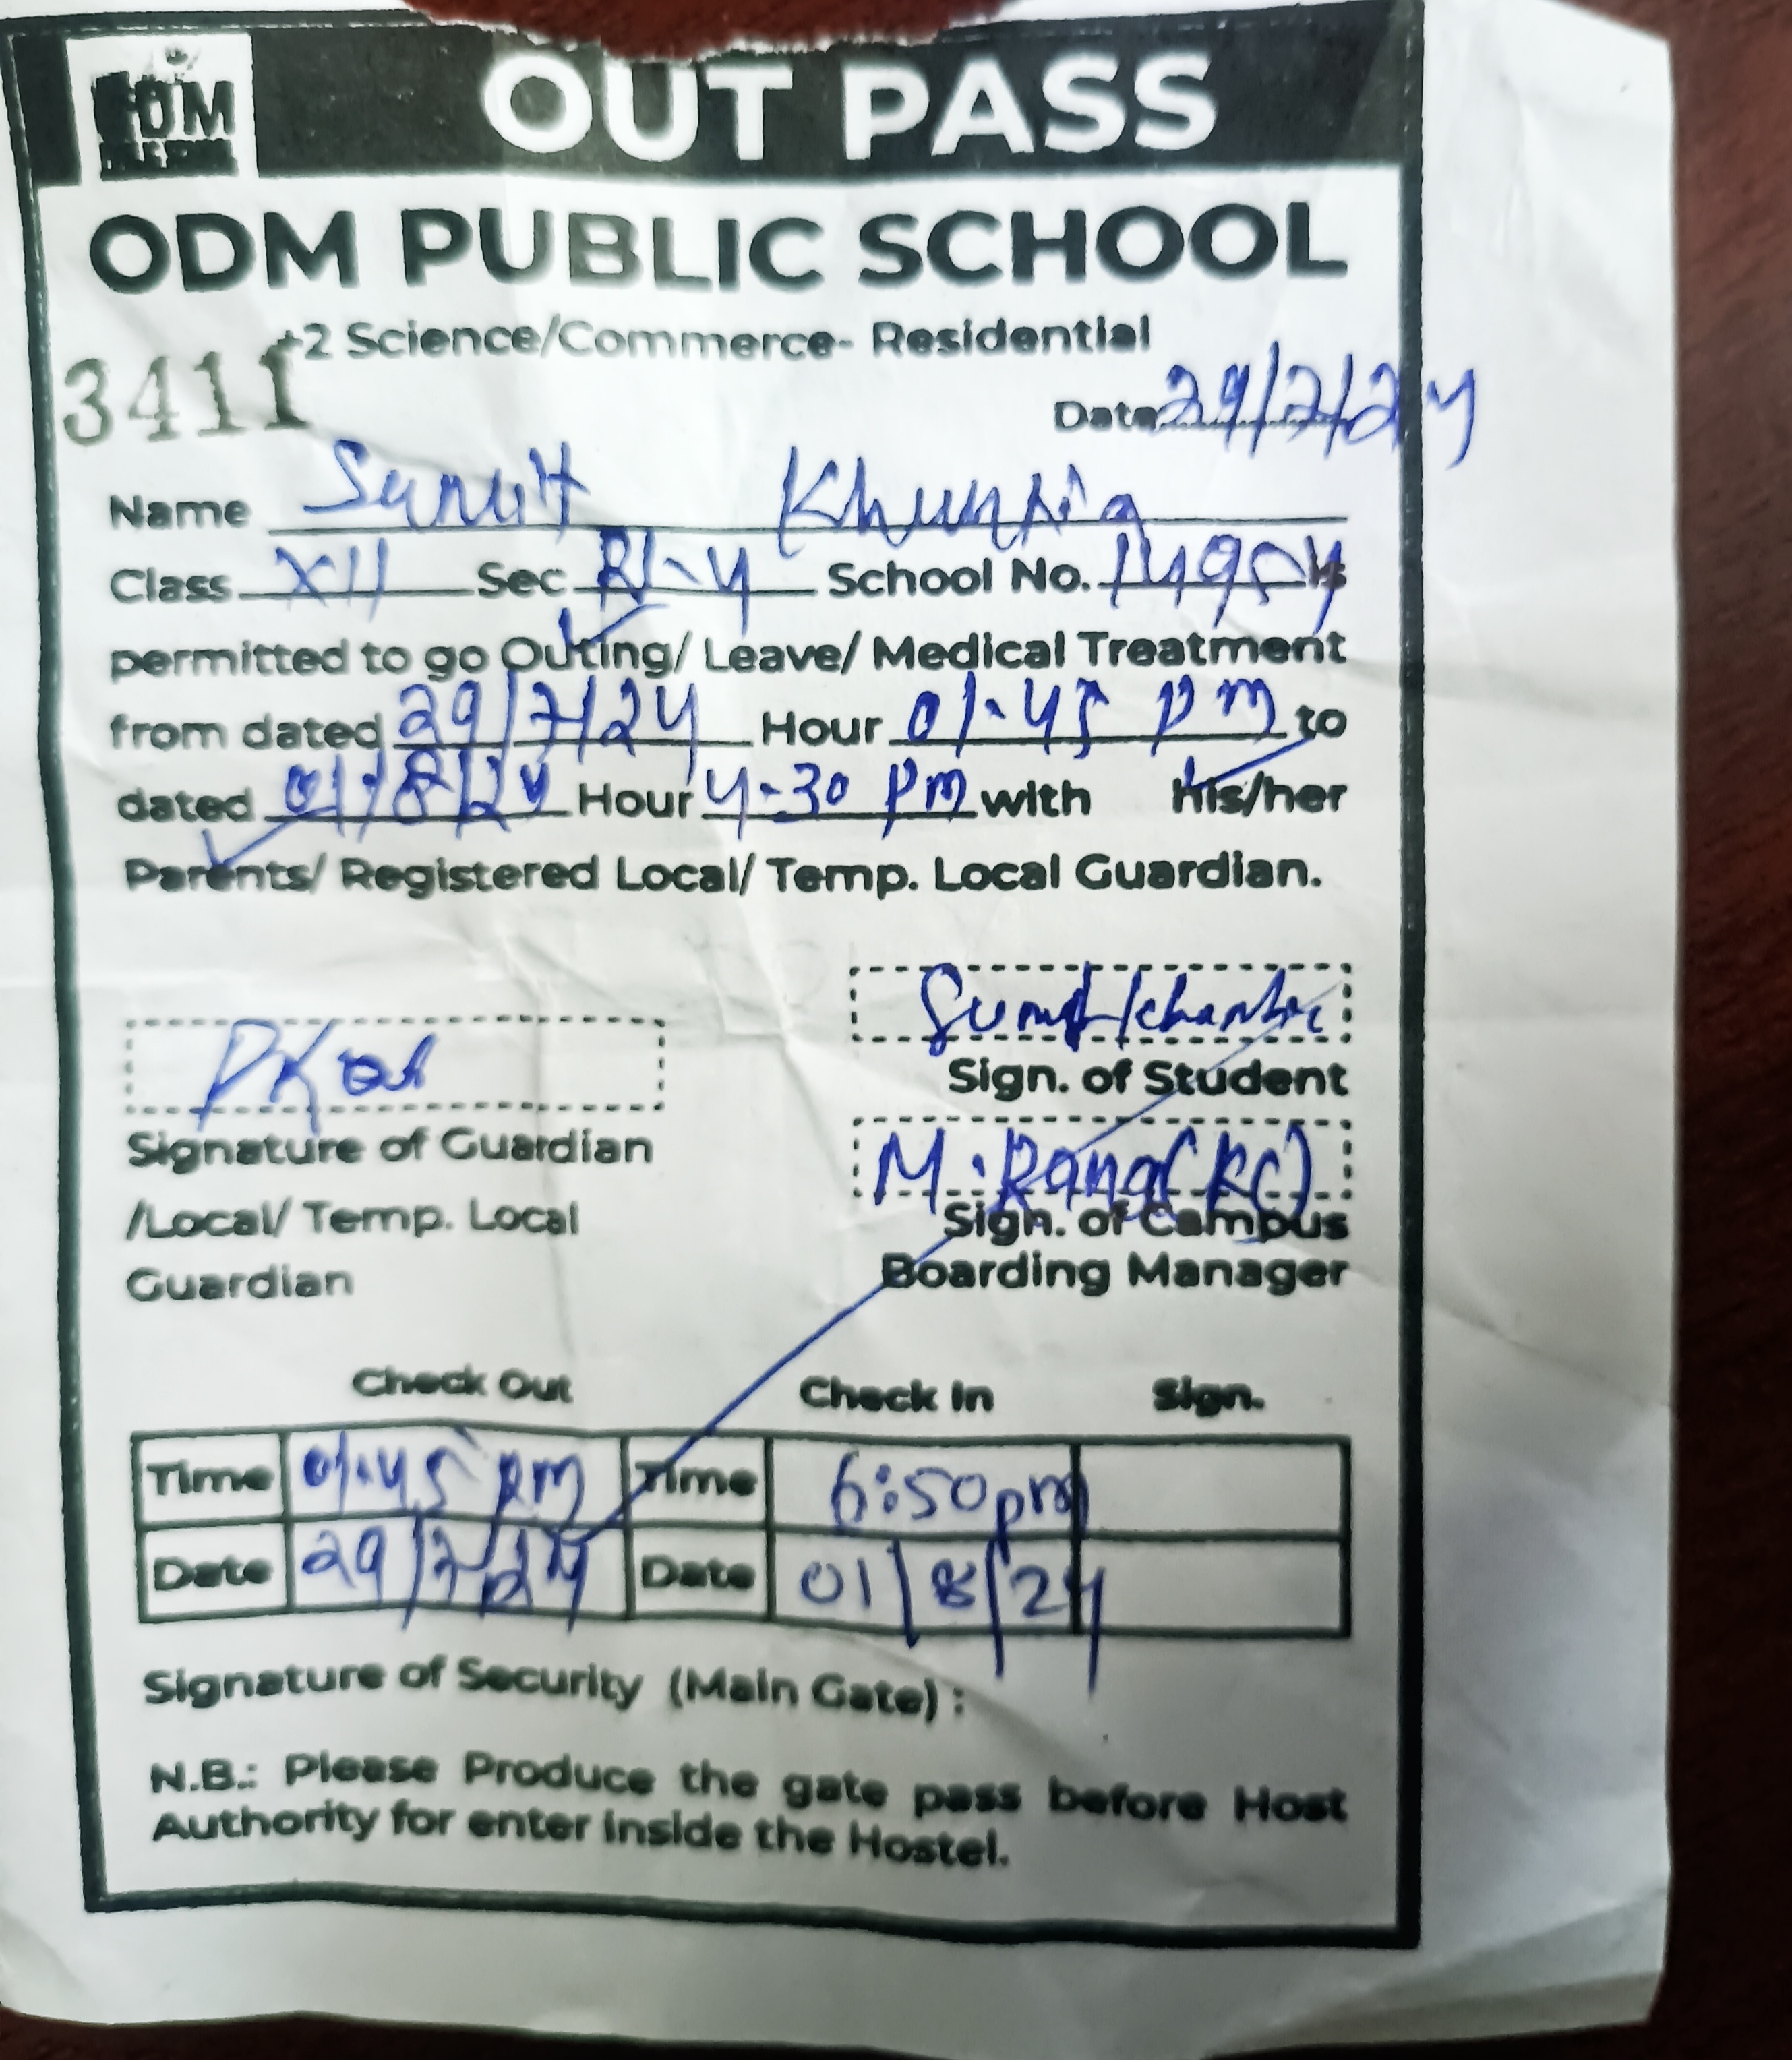 ODM
PUBLIC SCHOOL
OUT PASS
ODM PUBLIC SCHOOL
+2 Science/Commerce- Residential
3411
Date 29/7/24
Name Sumit Khuntia
Class XII Sec School No.
permitted to go Outing/ Leave/ Medical Treatment
from dated 29/7/24 Hour 01.45 pm to
dated 01/8/24 Hour 4.30 pm with his/her
Parents/ Registered Local/ Temp. Local Guardian.
Sumit Khuntia
Sign. of Student
Signature of Guardian
/Local/ Temp. Local
Guardian
M. Rana (RC)
Sign. of Campus
Boarding Manager
Check Out Check In Sign.
Time 01.45 pm Time 6:50pm
Date 29/7/24 Date 01/8/24
Signature of Security (Main Gate) :
N.B.: Please Produce the gate pass before Host
Authority for enter inside the Hostel.